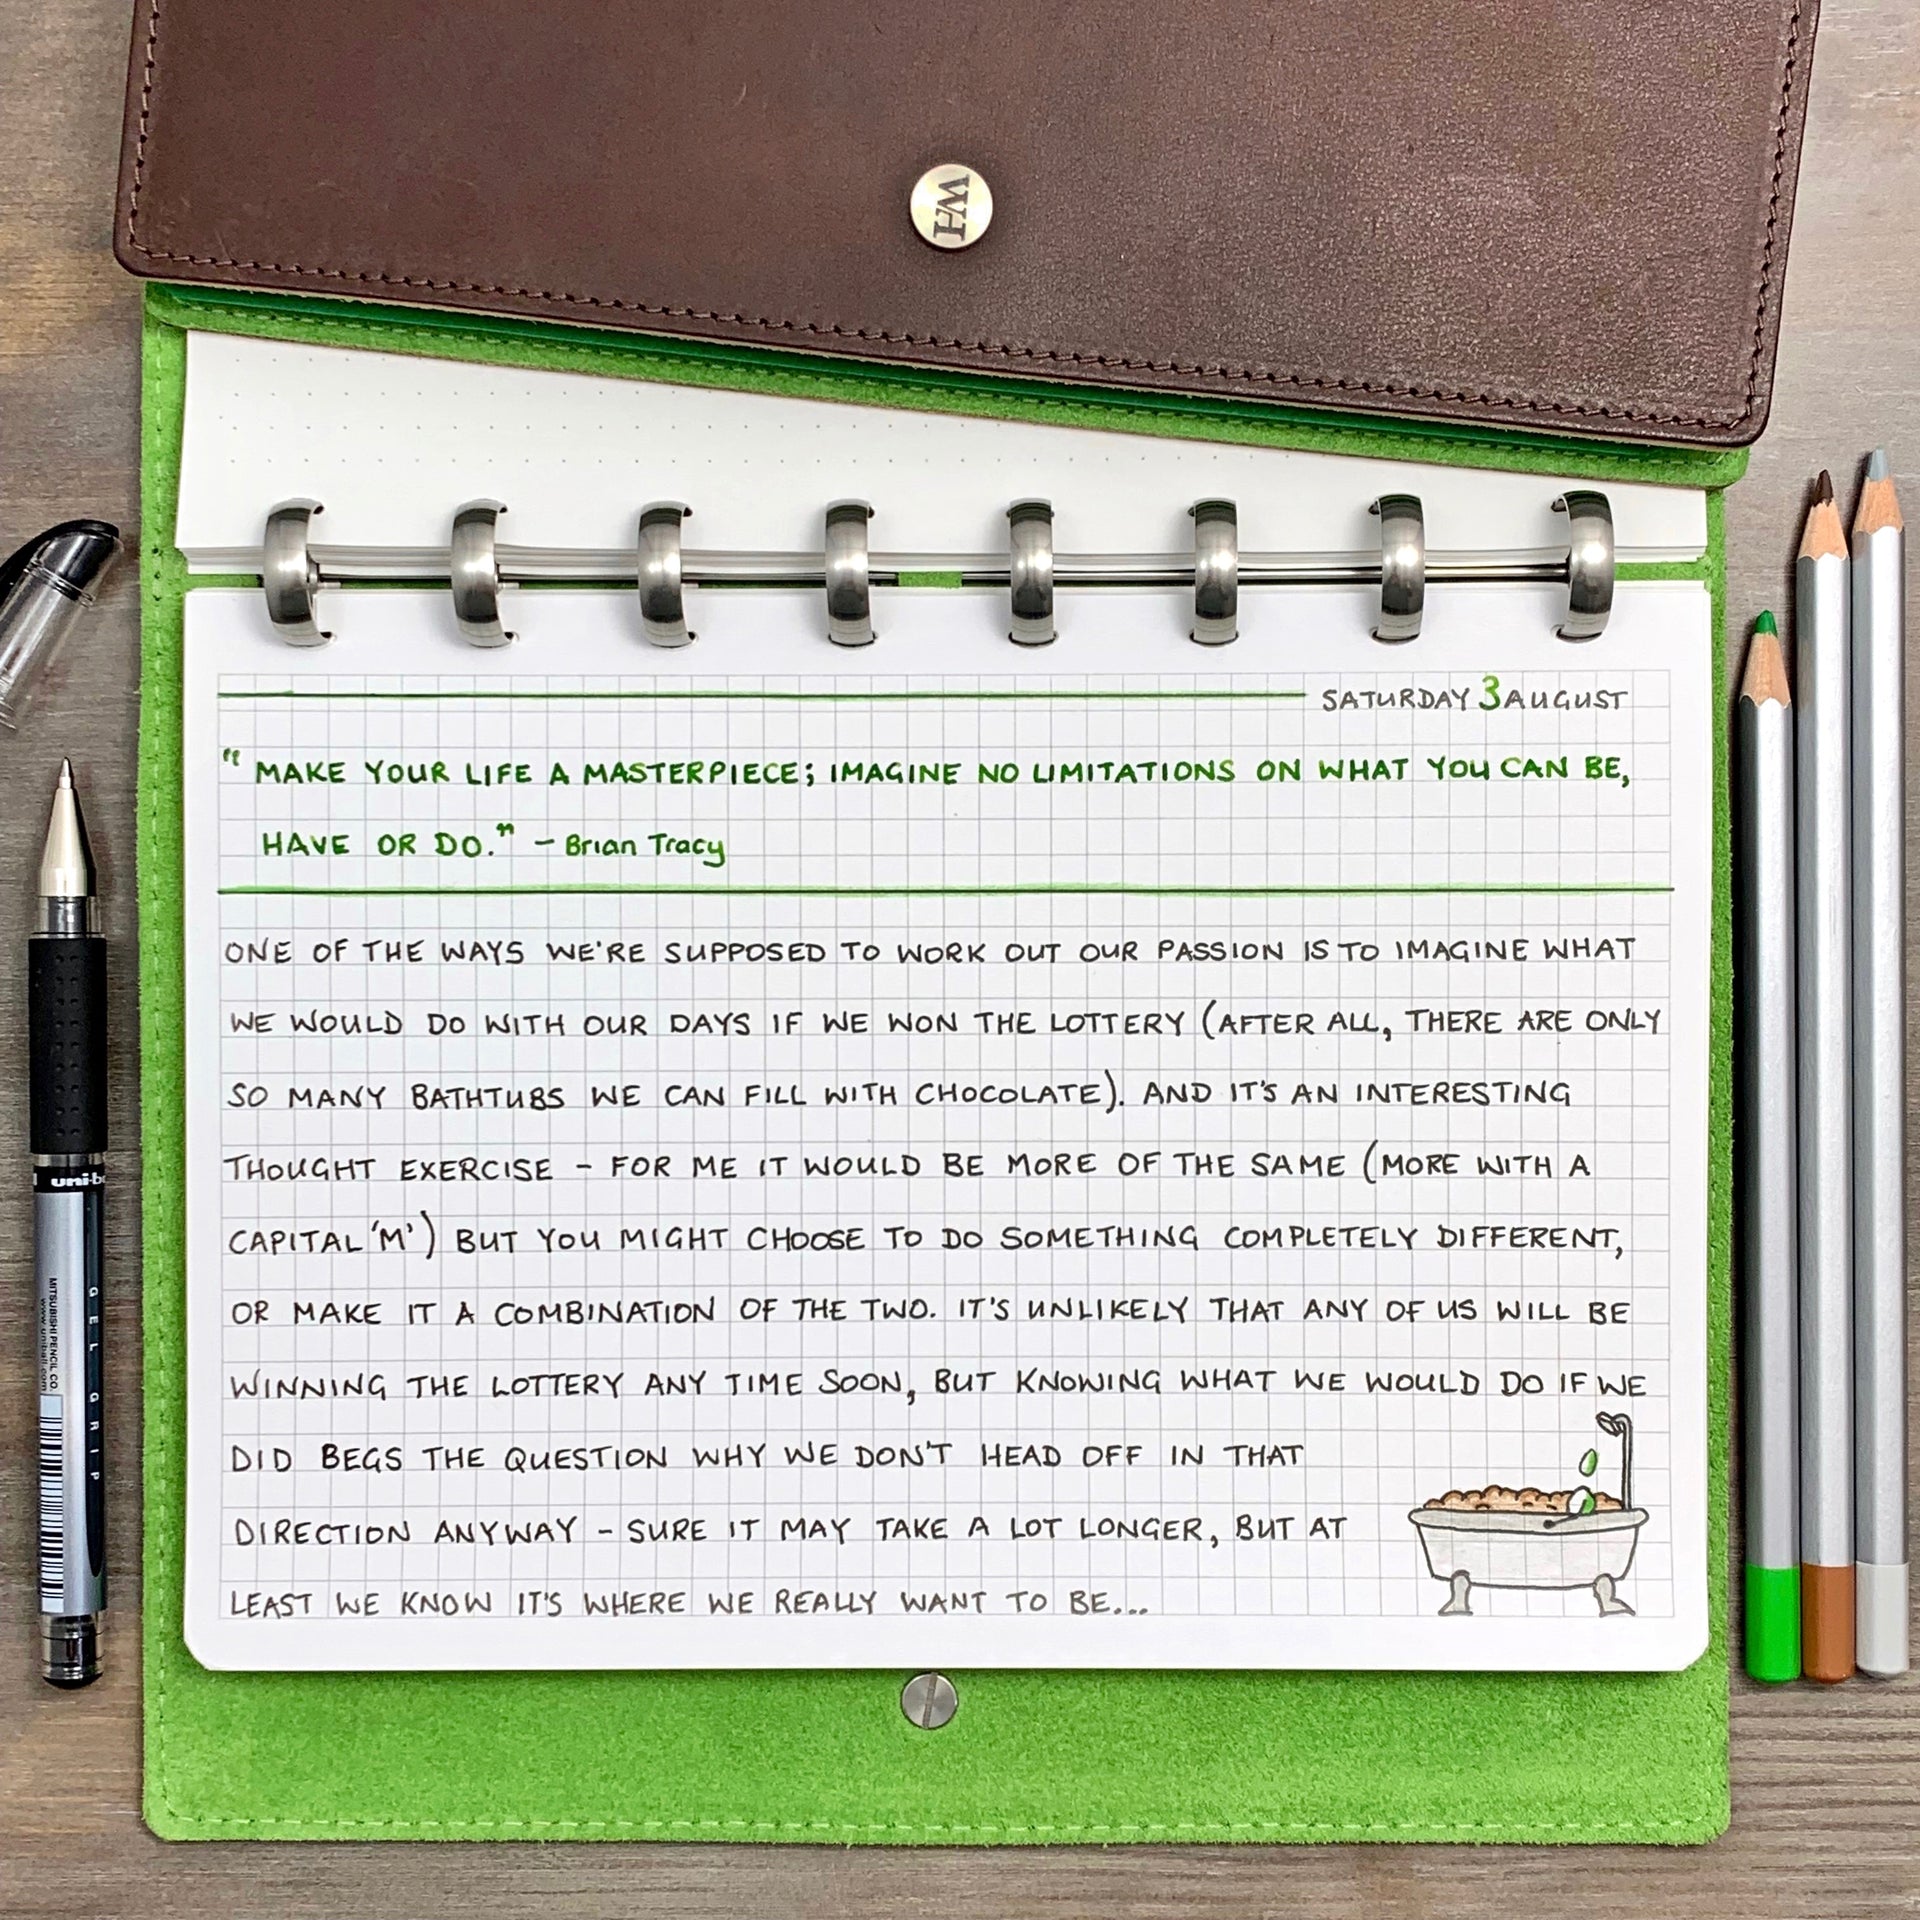 WH
SATURDAY 3 AUGUST
" MAKE YOUR LIFE A MASTERPIECE; IMAGINE NO LIMITATIONS ON WHAT YOU CAN BE,
HAVE OR DO." - Brian Tracy
ONE OF THE WAYS WE'RE SUPPOSED TO WORK OUT OUR PASSION IS TO IMAGINE WHAT
WE WOULD DO WITH OUR DAYS IF WE WON THE LOTTERY (AFTER ALL, THERE ARE ONLY
SO MANY BATHTUBS WE CAN FILL WITH CHOCOLATE). AND IT'S AN INTERESTING
THOUGHT EXERCISE - FOR ME IT WOULD BE MORE OF THE SAME (MORE WITH A
CAPITAL 'M') BUT YOU MIGHT CHOOSE TO DO SOMETHING COMPLETELY DIFFERENT,
OR MAKE IT A COMBINATION OF THE TWO. IT'S UNLIKELY THAT ANY OF US WILL BE
WINNING THE LOTTERY ANY TIME SOON, BUT KNOWING WHAT WE WOULD DO IF WE
DID BEGS THE QUESTION WHY WE DON'T HEAD OFF IN THAT
DIRECTION ANYWAY - SURE IT MAY TAKE A LOT LONGER, BUT AT
LEAST WE KNOW IT'S WHERE WE REALLY WANT TO BE...
uni-b
GEL GRIP
MITSUBISHI PENCIL CO.
www.uniball.com